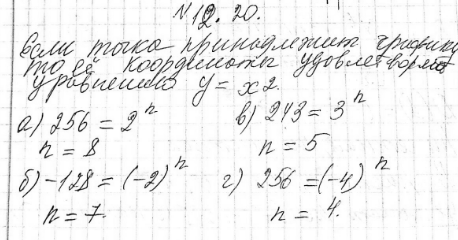 N 12. 20.
Если точка принадлежит графику,
то её координаты удовлетворяют
уравнению y = x 2.
а) 256 = 2ⁿ в) 243 = 3ⁿ
n = 8 n = 5
б) -128 = (-2)ⁿ г) 256 = (-4)ⁿ
n = 7. n = 4.